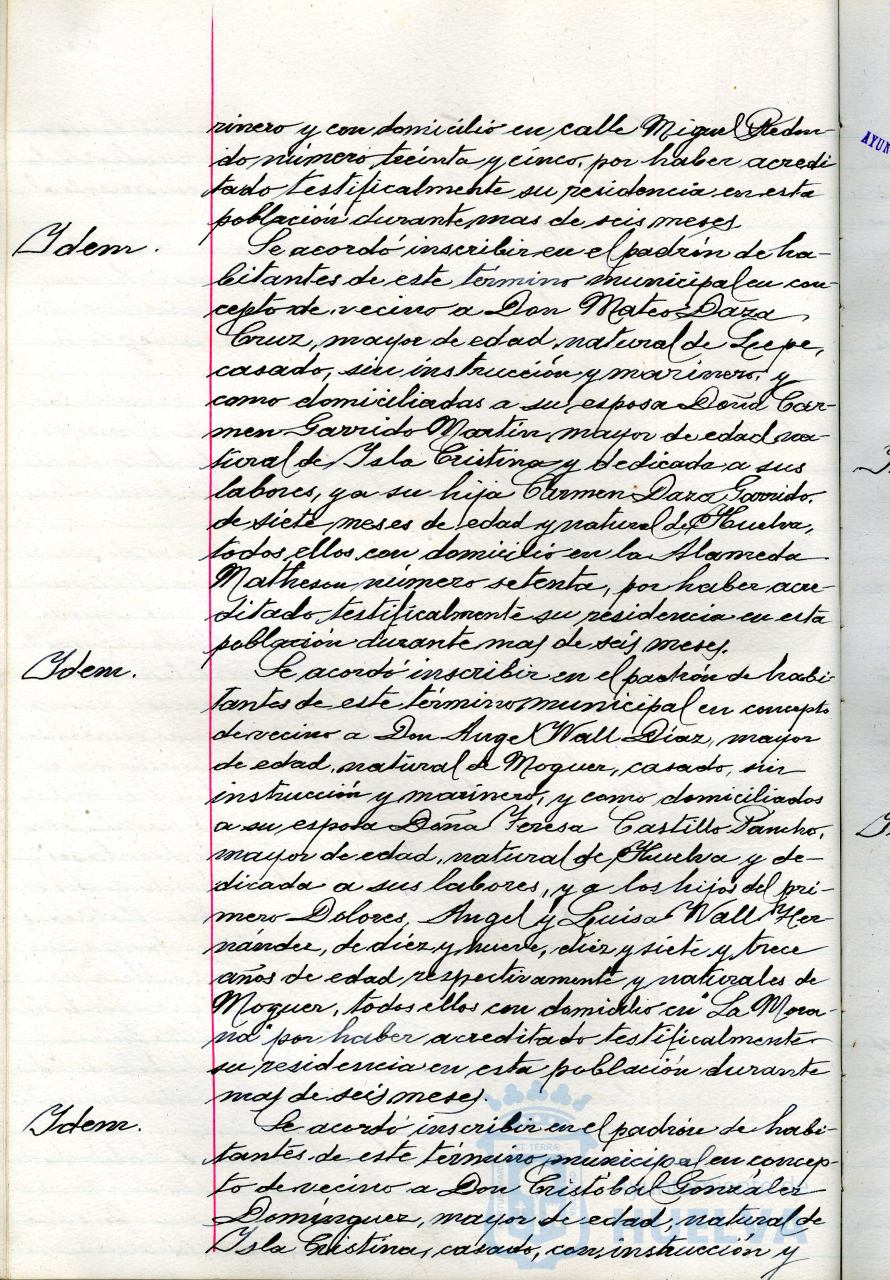 rinero y con domicilio en calle Miguel Redon-
do número treinta y cinco, por haber acredi
tado testificalmente su residencia en esta
población durante mas de seis meses.
Idem.
Se acordó inscribir en el padrón de ha-
bitantes de este término municipal en con-
cepto de vecino a Don Mateo Daza
Cruz, mayor de edad, natural de Lepe,
casado, sin instrucción y marinero, y
como domiciliadas a su esposa Doña Car-
men Garrido Martín, mayor de edad, na-
tural de Isla Cristina y dedicada a sus
labores, y a su hija Carmen Daza Garrido,
de siete meses de edad y natural de Huelva,
todos ellos con domicilio en la Alameda
Matheson número setenta, por haber acre-
ditado testificalmente su residencia en esta
población durante mas de seis meses.
Idem.
Se acordó inscribir en el padrón de habi-
tantes de este término municipal en concepto
de vecino a Don Angel Wall Díaz, mayor
de edad, natural de Moguer, casado, sin
instrucción y marinero, y como domiciliados
a su esposa Doña Teresa Castillo Pancho,
mayor de edad, natural de Huelva y de-
dicada a sus labores, y a los hijos del pri-
mero Dolores, Angel y Luisa Wall Her-
nández, de diez y nueve, diez y siete y trece
años de edad respectivamente y naturales de
Moguer, todos ellos con domicilio en "La Mora-
na" por haber acreditado testificalmente
su residencia en esta población durante
mas de seis meses.
Idem.
Se acordó inscribir en el padrón de habi-
tantes de este término municipal en concep-
to de vecino a Don Cristóbal González
Domínguez, mayor de edad, natural de
Isla Cristina, casado, con instrucción y
AYUN
HUELVA